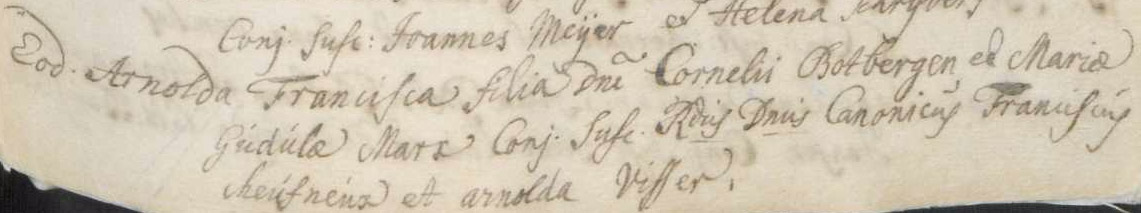 Conj. Susc: Joannes Meÿer et Helena
Eod. Arnolda Francisca filia Dni Cornelii Botbergen et Mariæ
Gúdúlæ Marx Conj. Susc. Rdús Dnús Canonicús Franciscús
cheúsneúx et arnolda Visser.